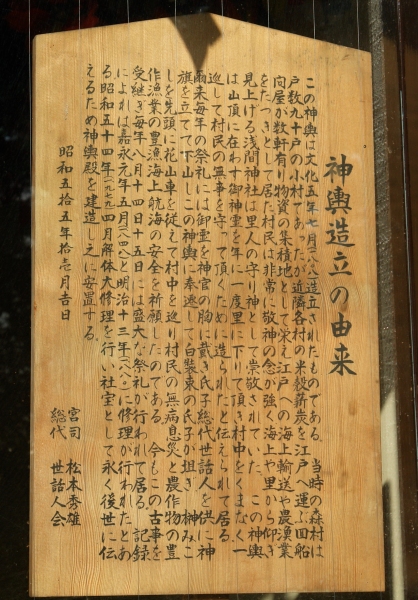 神輿造立の由来
この神輿は文化五年七月(一八〇八)造立されたものである。当時の森村は
戸数九十戸の小村であったが近隣各村の米穀薪炭を江戸へ運ぶ回船
問屋が数軒有り物資の集積地として栄え江戸への海上輸送や農漁業
をたつきとして居た村民は非常に敬神の念が強く海上や里から仰ぎ
見上げる浅間神社は里人の守り神として崇敬されていた。この神輿
は山頂に在わす御神霊を年に一度里に下りて頂き村中をくまなく一
巡して村民の無事を守って頂くために造られたと伝えられて居る。
爾来毎年の祭礼には御霊を神官の胸に戴き氏子総代世話人を供に神
旗を立てて下山しこの神輿に奉遷して白装束の氏子が担ぎ榊みこ
しを先頭に花山車を従えて村中を巡り村民の無病息災と農作物の豊
作漁業の豊漁海上航海の安全を祈願したのである。今もこの古事を
受継ぎ毎年八月十四日十五日には盛大な祭礼が行われて居る。記録
によれば嘉永元年五月(一八四八)と明治十三年(一八八〇)に修理が行われたとあ
る昭和五十四年(一九七九)四月解体大修理を行い社宝として永く後世に伝
えるため神輿殿を建造し之に安置する。
昭和五拾五年拾壱月吉日
宮司 松本秀雄
総代 世話人会